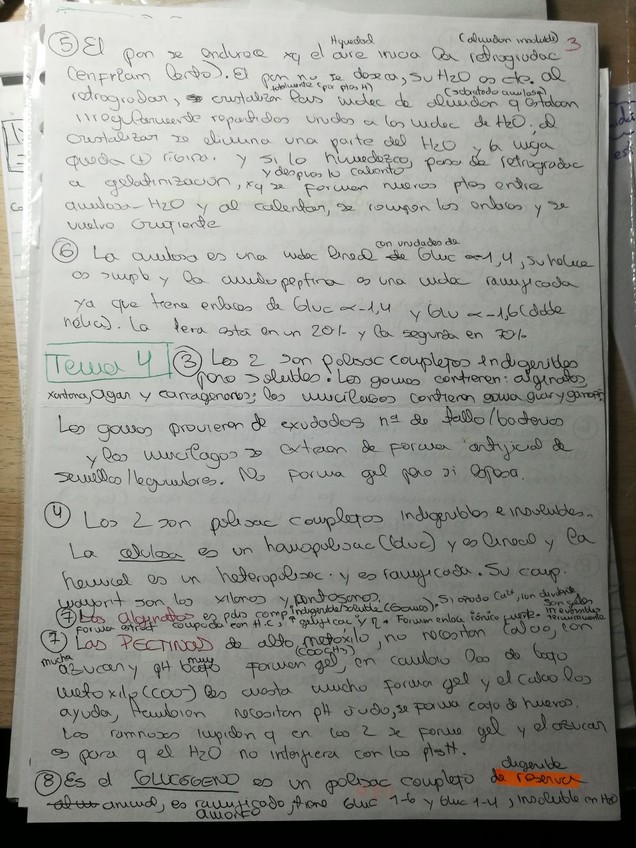 3
Hquedad (almidon insoluble)
⑤ El pan se endurece xq el aire inicia la retrogradac
(enfriam lento). El pan no se deseca, su H2O es cte. al
totalmente (por ptes H) (sobretodo amilosa)
retrogradar, cristalizan las molec de almidon q estaban
irregularmente repartidas unidas a las molec de H2O, al
cristalizar se elimina una parte del H2O y la miga
queda (+) rigida. y si lo humedezco, pasa de retrogradac
y despues lo caliento
a gelatinización, xq se forman nuevos ptes entre
amilosa-H2O y al calentar, se rompen los enlaces y se
vuelve crujiente
con unidades de
⑥ La amilosa es una molec lineal de Gluc ∝-1,4, su helice
es simple y la amilopeptina es una molec ramificada
ya que tiene enlaces de Gluc ∝-1,4 y Glu ∝-1,6 (doble
helice). La 1era está en un 20% y la segunda en 70%
Tema 4 ③ Los 2 son polisac complejos indigeribles
pero solubles. Las gomas contienen: alginatos,
xantana, agar y carragenanos; los mucílagos contienen goma guar y garrofin
Las gomas provienen de exudados de tallo/bacterias
y los mucílagos se extraen de forma artificial de
semillas/legumbres. No forma gel pero si espesa.
④ Los 2 son polisac complejos indigeribles e insolubles.
La celulosa es un homopolisac (Gluc) y es lineal y la
hemicel es un heteropolisac. y es ramificada. Su comp.
mayorit son los xilanos y pentosanos.
⑦ Los alginatos es polis comp indigerible/soluble (Gomas). Si añado Ca++, ion divalente
⑦ Las PECTINAS de alto metoxilo, no necesitan calcio, con
(COOCH3)
mucha azucar y pH muy bajo forman gel, en cambio las de bajo
metoxilo (COO-) les cuesta mucho formar gel y el calcio los
ayuda, tambien necesitan pH acido, se forma caja de huevos.
Las ramnosas impiden q en los 2 se forme gel y el azucar
es para q el H2O no interfiera con los ptes H.
digerible
⑧ Es el GLUCOGENO es un polisac complejo de reserva
animal, es ramificado, tiene Gluc 1-6 y Gluc 1-4, insoluble en H2O
amorfo